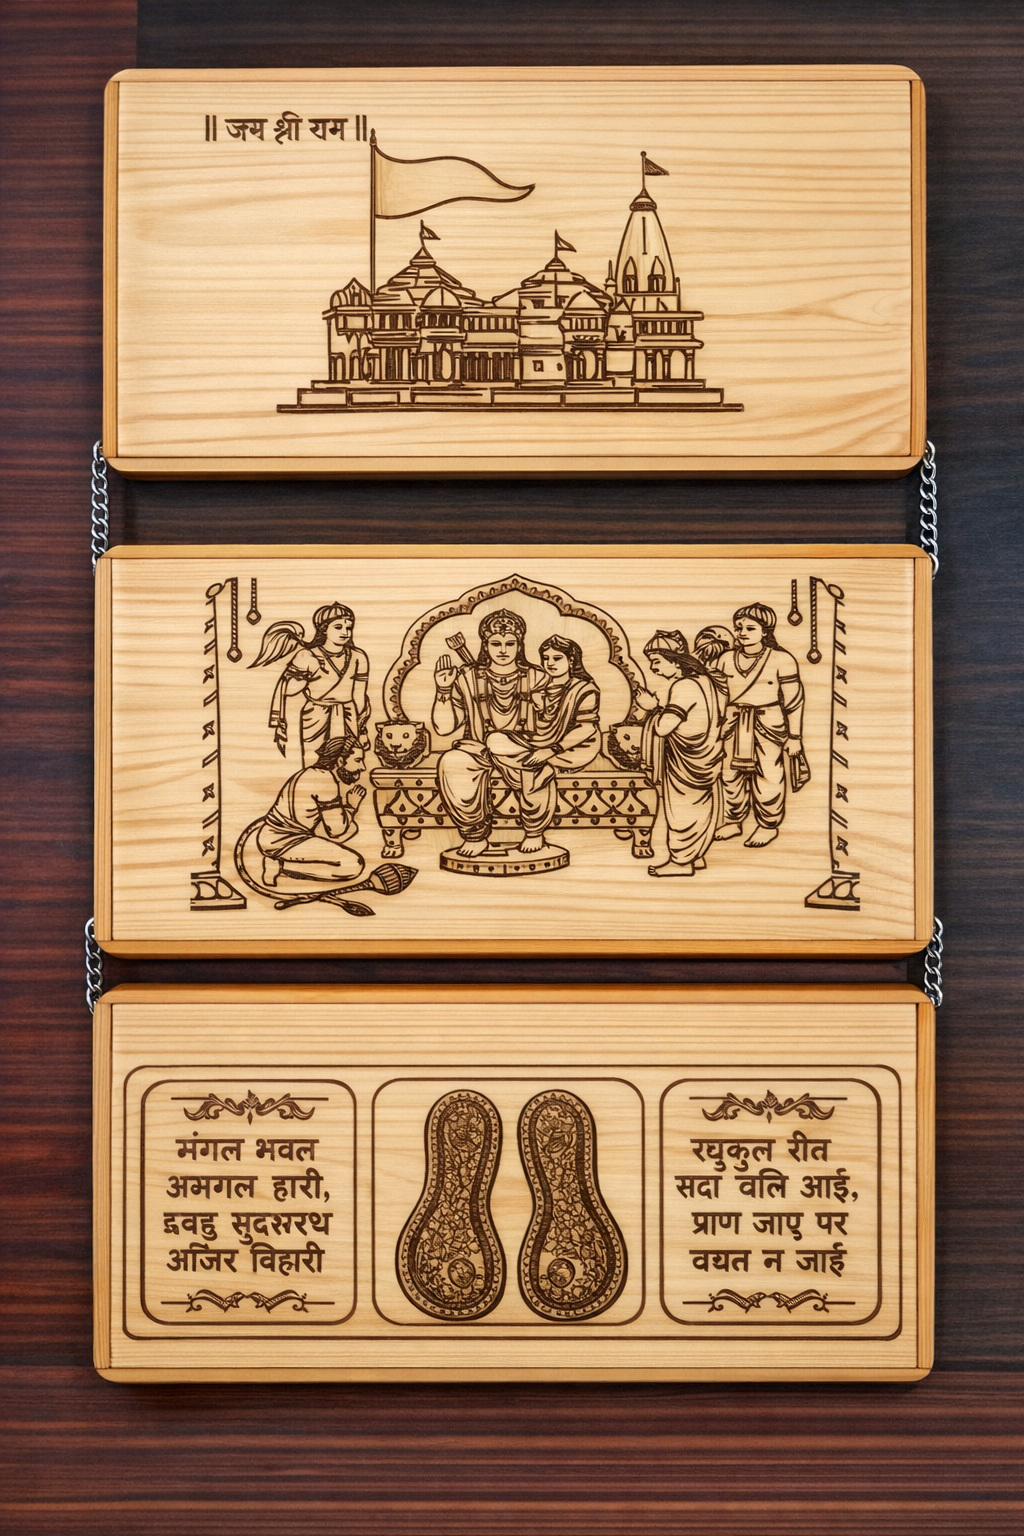 ॥ जम श्री राम ॥
मंगल भवल
अमगल हारी,
द्रवहु सुदसरथ
अजिर विहारी
रघुकुल रीत
सदा वलि आई,
प्राण जाए पर
वयत न जाई